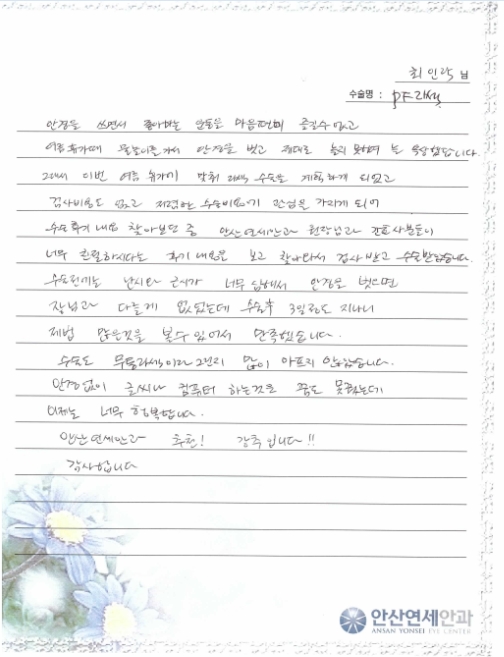 최인락 님
수술명 : PF라섹
안경을 쓰면서 좋아하는 운동을 마음편히 즐길수 없고
여름휴가때 물놀이를 가서 안경을 벗고 제대로 놀지 못하여 늘 속상했답니다.
그래서 이번 여름 휴가에 맞춰 라섹 수술을 계획하게 되었고
검사비용도 없고 저렴한 수술비용에 관심을 가지게 되어
수술후기 내용 찾아보던 중 안산연세안과 원장님과 간호사분들이
너무 친절하시다는 후기 내용을 보고 찾아와서 검사 받고 수술받았습니다.
수술전에는 난시와 근시가 너무 심해서 안경을 벗으면
장님과 다를게 없었는데 수술후 3일정도 지나니
제법 많은것을 볼수 있어서 만족했습니다.
수술도 무통라섹이라 그런지 많이 아프지 않았습니다.
안경없이 글씨나 컴퓨터 하는것을 꿈도 못꿨는데
이제는 너무 행복합니다.
안산연세안과 추천! 강추입니다!!
감사합니다
안산연세안과
ANSAN YONSEI EYE CENTER